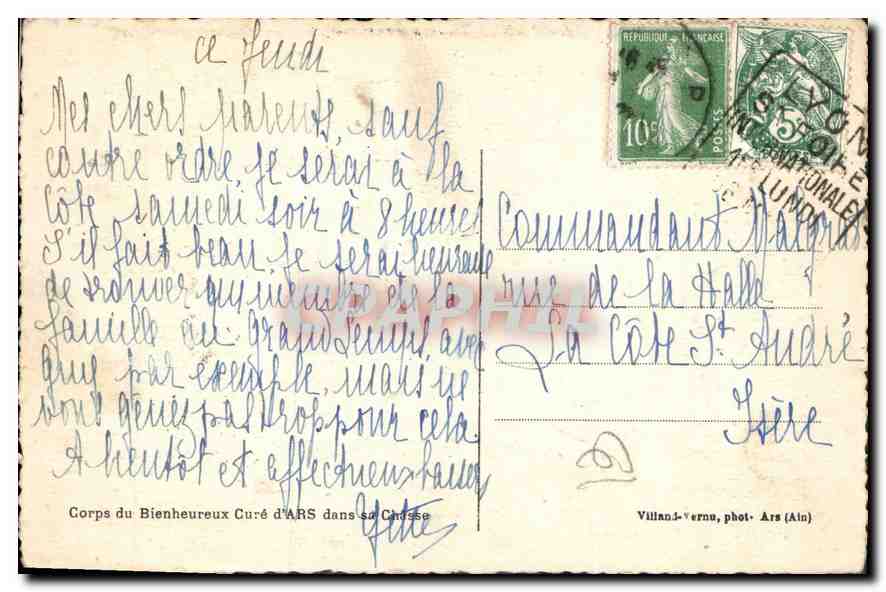 ce Jeudi
Mes chers parents, sauf
contre ordre, je serai à la
Côte samedi soir à 8 heures
S'il fait beau, je serai heureux
de trouver qu membre de la
famille au grand Lemps, avec
par exemple, mais ne
vous gênez pas trop pour cela.
A bientôt et affectueux baisers
RÉPUBLIQUE FRANÇAISE
10c
POSTES
5c
LYON
FOIRE
INTERNATIONALE
LUNDI
Commandant
rue de la Halle
La Côte St. André
Isère
CPAPHIL
Corps du Bienheureux Curé d'ARS dans sa Châsse
Villand-Vernu, phot- Ars (Ain)